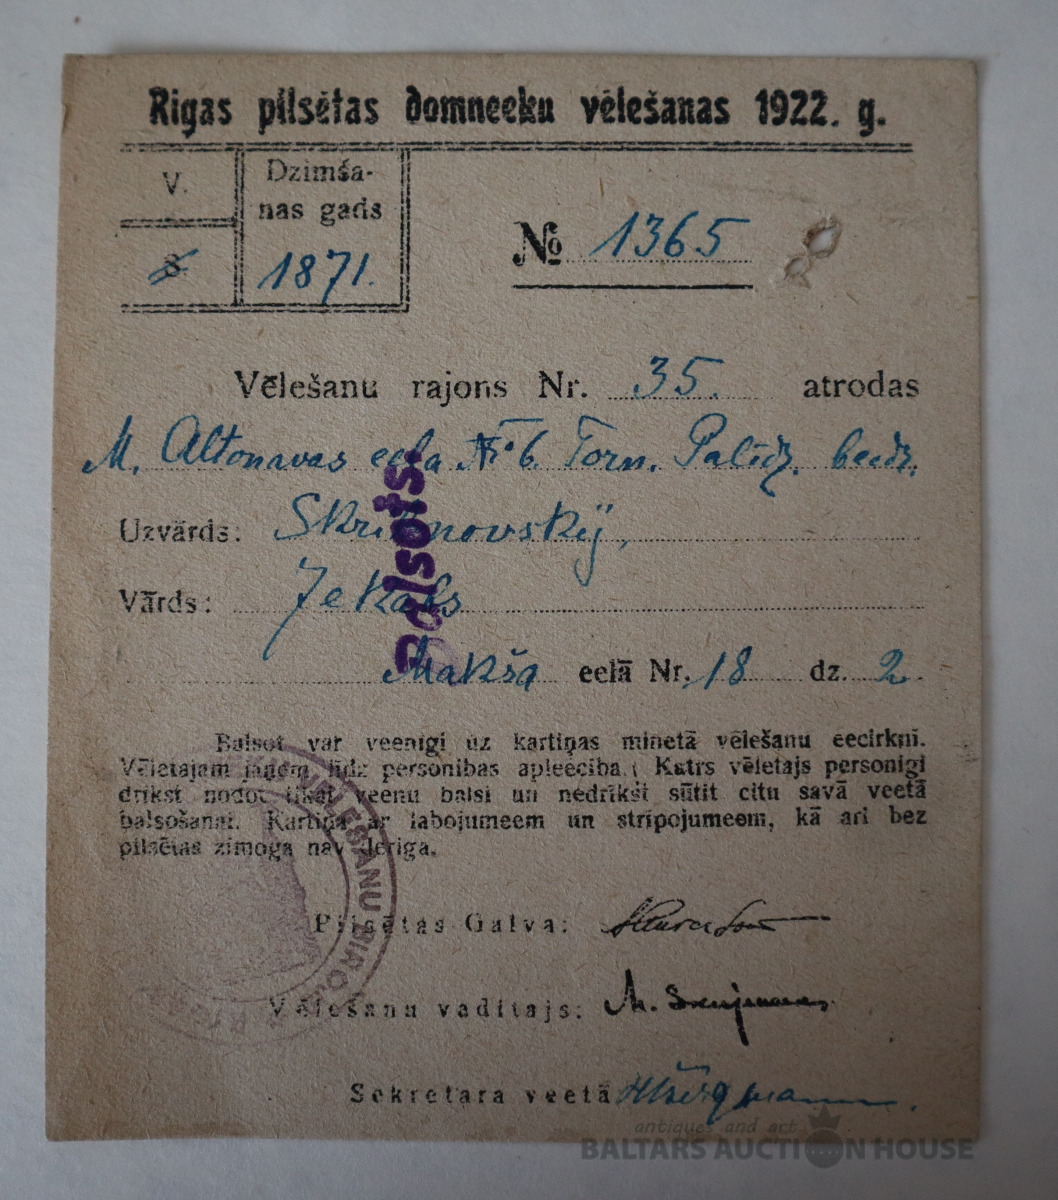 Rigas pilsētas domneeku vēlešanas 1922. g.
V.
Dzimša-
nas gads
1871.
№ 1365
Vēlešanu rajons Nr. 35. atrodas
M. Altonavas eela № 6. Torn. Palīdz. beedr.
Uzvārds:
Vārds: Jekabs
Balsots
Makša eelā Nr. 18 dz. 2
Balsot var veenigi uz kartiņas minetā vēlešanu eecirkni.
Vēletajam jaņem līdz personibas apleeciba. Katrs vēletajs personigi
drikst nodot tikai veenu balsi un nedrikst sūtit citu savā veetā
balsošanai. Kartiņa ar labojumeem un stripojumeem, kā ari bez
pilsētas zimoga nav deriga.
VĒLEŠANU BIROJS
Pilsētas Galva:
Vēlešanu vaditajs:
Sekretara veetā
antiques and art
BALTARS AUCTION HOUSE